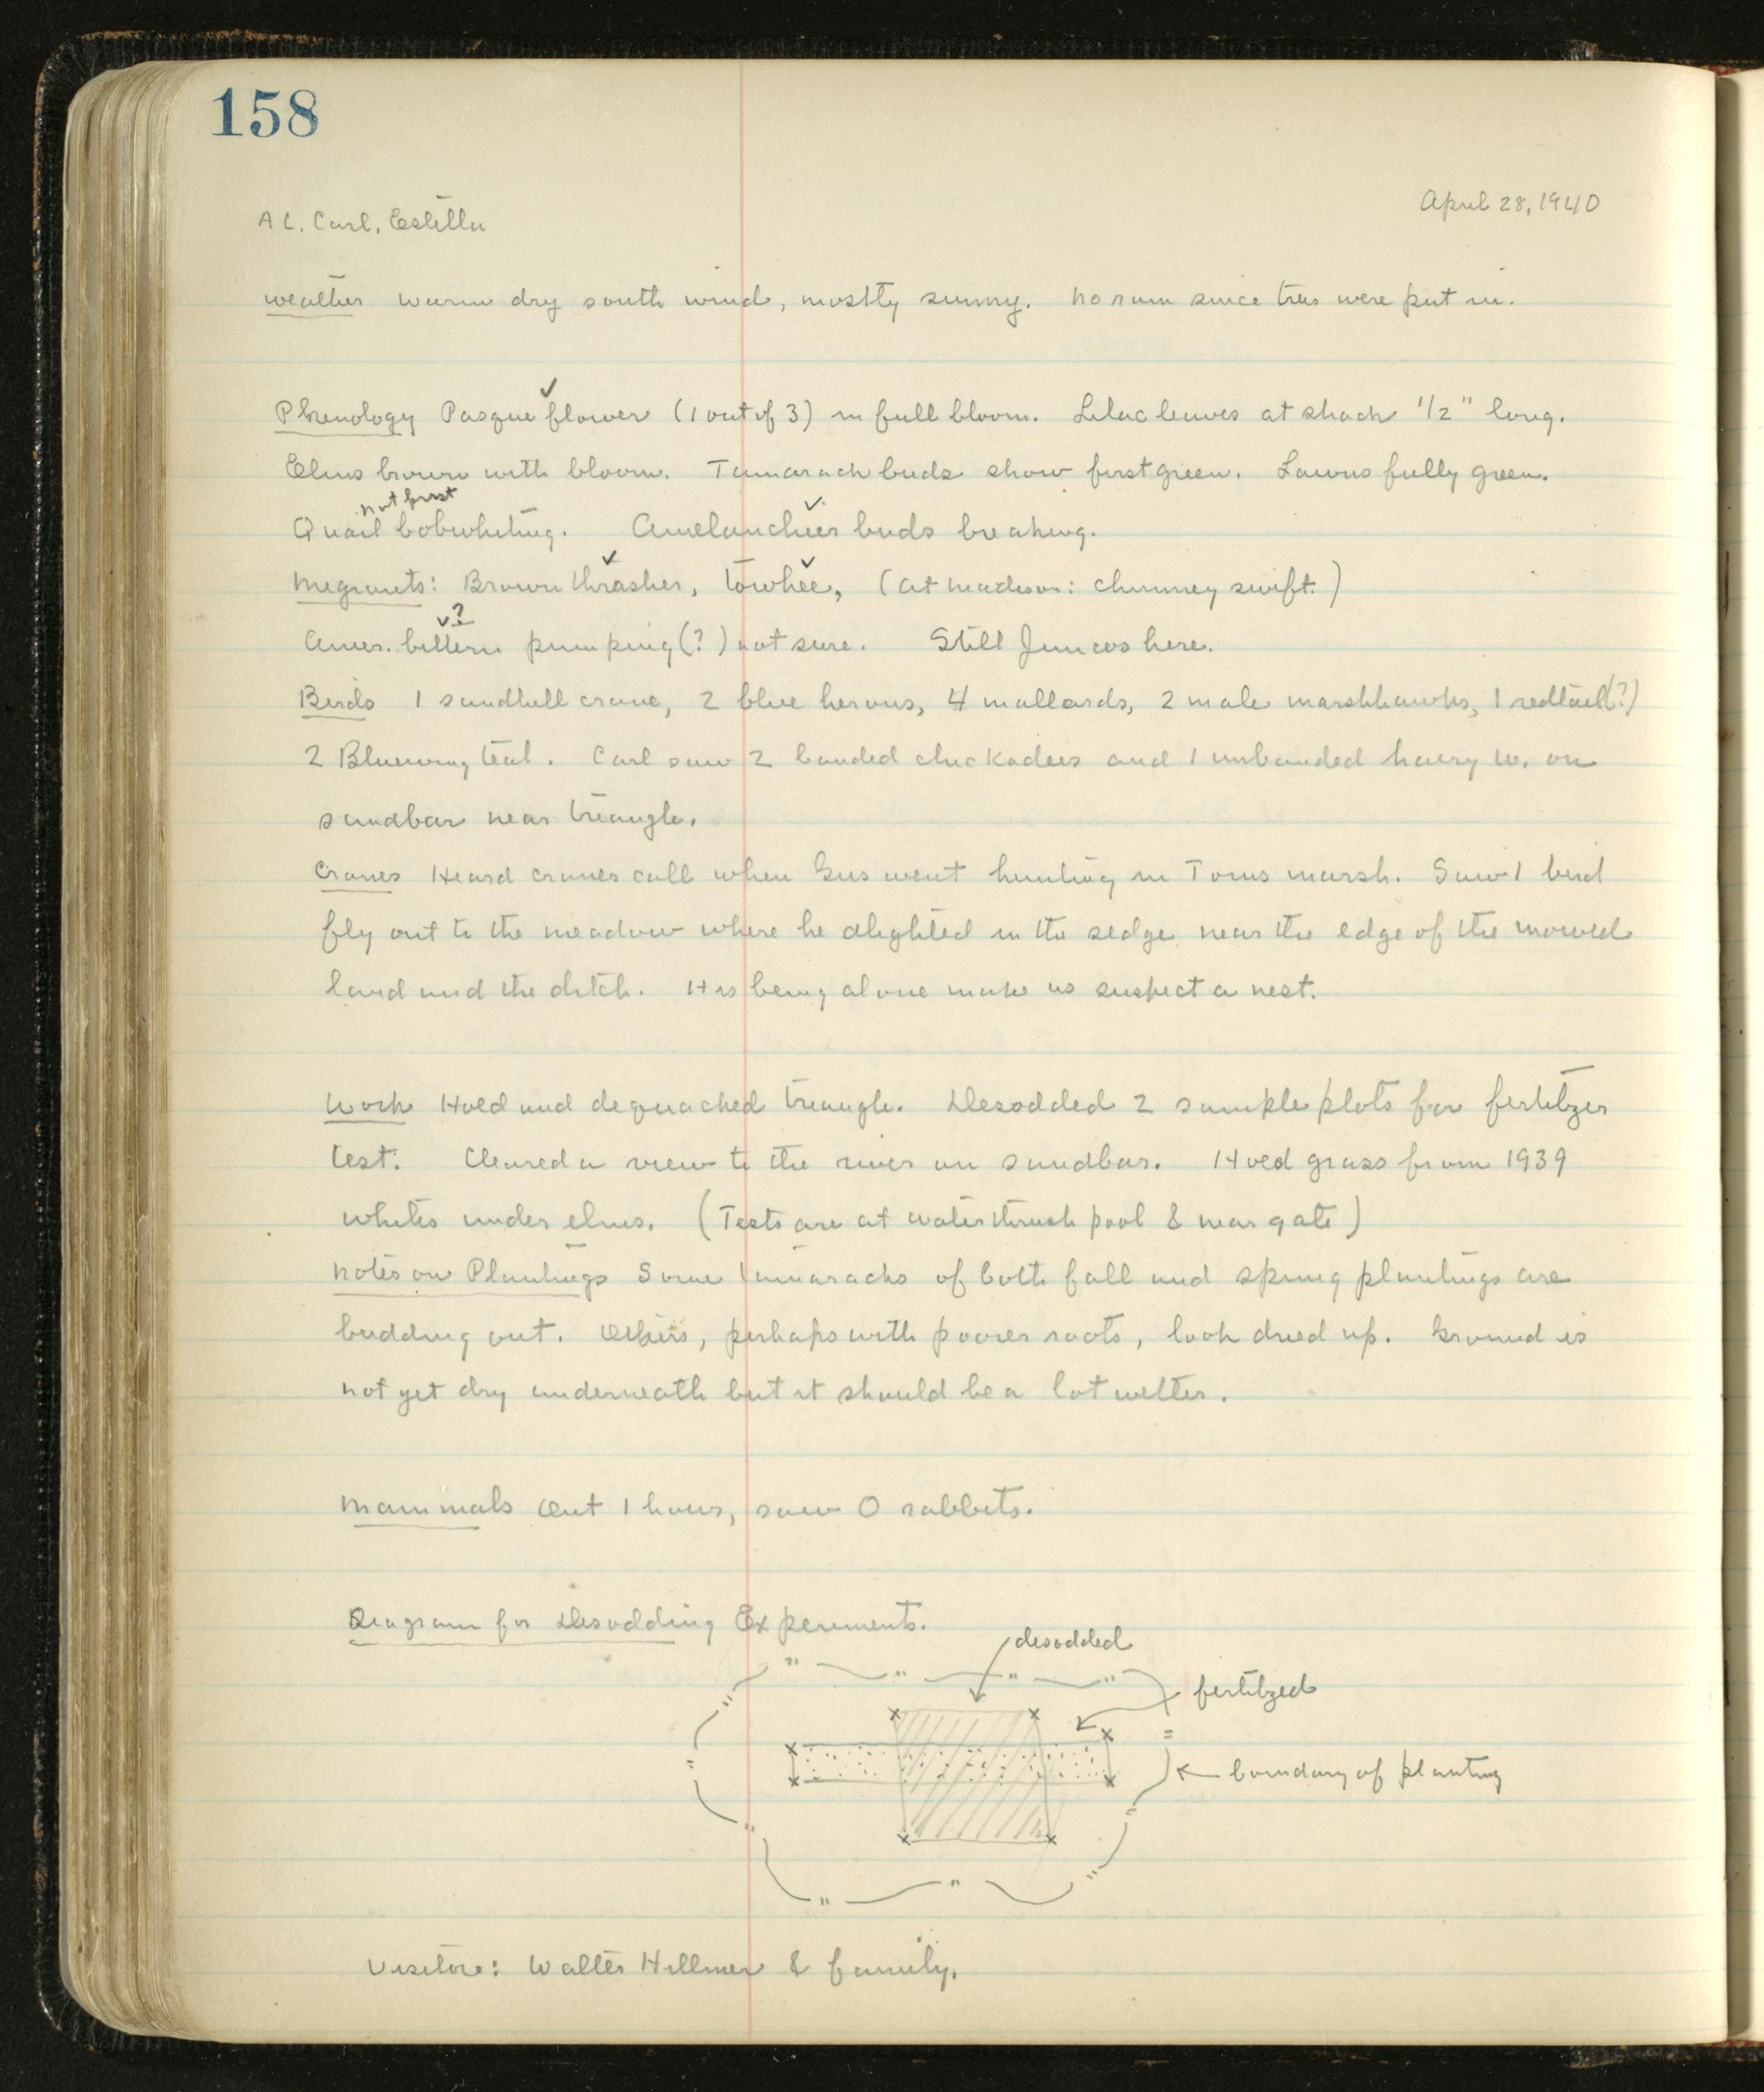 158
April 28, 1940
AL, Carl, Estella
Weather warm dry south wind, mostly sunny. No rain since trees were put in.
✓
Phenology Pasque flower (1 out of 3) in full bloom. Lilac leaves at shack 1/2" long.
Elms brown with bloom. Tamarack buds show first green. Lawns fully green.
not first ✓
Quail bobwhiting. Amelanchier buds breaking.
✓ ✓
Migrants: Brown thrasher, towhee, (at Madison: chimney swift.)
✓?
Amer. bittern pumping (?) not sure. Still Juncos here.
Birds 1 sandhill crane, 2 blue herons, 4 mallards, 2 male marshhawks, 1 redtail(?)
2 Bluewing teal. Carl saw 2 banded chickadees and 1 unbanded hairy w. on
sandbar near triangle.
Cranes Heard cranes call when Gus went hunting in Toms marsh. Saw 1 bird
fly out to the meadow where he alighted in the sedge near the edge of the mowed
land and the ditch. His being alone make us suspect a nest.
Work Hoed and dequacked triangle. Desodded 2 sample plots for fertilizer
test. Cleared a view to the river on sandbar. Hoed grass from 1939
whites under elms. (Tests are at waterthrush pool & near gate)
Notes on Plantings Some tamaracks of both fall and spring plantings are
budding out. Others, perhaps with poorer roots, look dried up. Ground is
not yet dry underneath but it should be a lot wetter.
Mammals Out 1 hour, saw 0 rabbits.
Diagram for Desodding Experiments.
desodded
fertilized
boundary of planting
Visitors: Walter Hillmer & family.